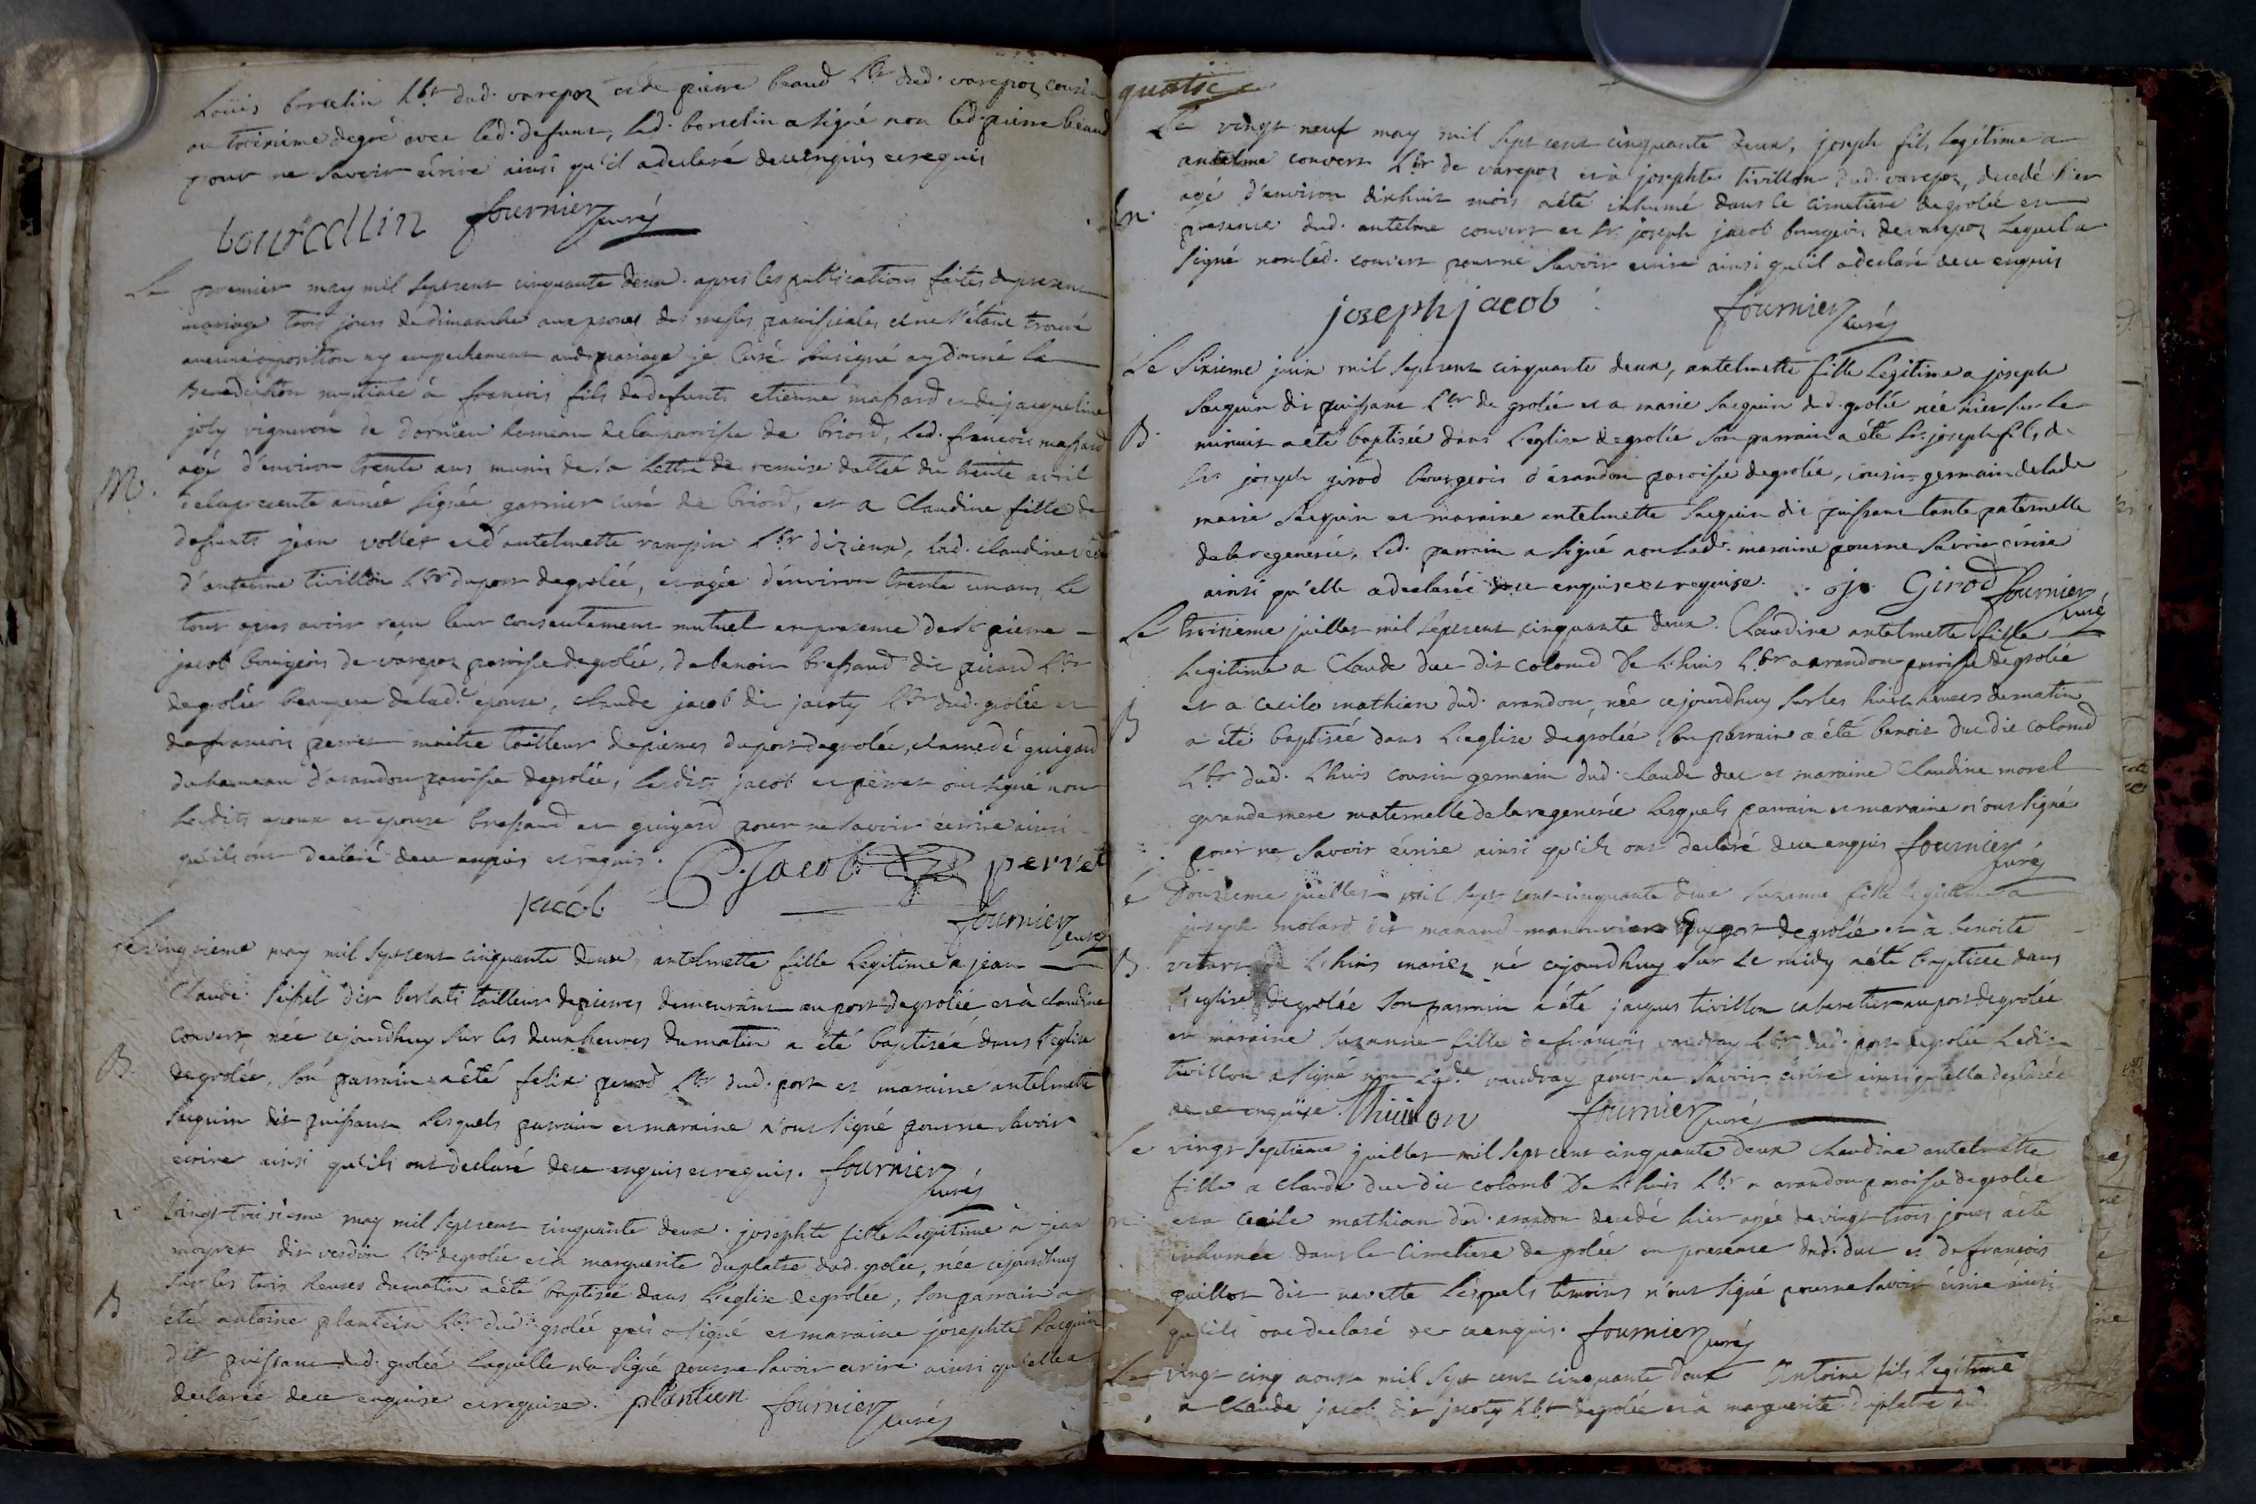 Loüis borcelin Lbr dud. varepoz et de pierre beaud Lbr dud. varepoz cousin
au troisieme degré avec led. defunt, led. borcelin a signé non led. pierre beaud
pour ne savoir écrire ainsi qu'il a declaré de ce enquis et requis
bourcellin fournier curé
Le premier may mil sept cent cinquante deux. apres les publications faites du present
mariage trois jours de dimanche aux prones des messes paroissiales et ne s'étant trouvé
aucune opposition ny empechement aud. mariage je Curé soussigné ay donné la
Benediction nuptiale à françois fils de defunts etienne massard et de jacqueline
joly vigneron de dornieu hameau de la paroisse de briord, led. françois massard
agé d'environ trente ans munis de la Lettre de remise dattée du trente avril
M.
de la presente année signée garnier curé de briord, et a Claudine fille de
defunts jean vollet et d'antelmette rampin Lbr dizieux, lad. claudine
d'antelme tivillon Lbr du port de grolée, et agée d'environ trente un ans, Le
tout apres avoir reçu leur consentement mutuel en presence de Sr pierre
jacob bourgeois de varepoz paroisse de grolée, de benoit bressand dit picard Lbr
de grolée beaupere de lad. epouse, claude jacob dit jacoty Lbr dud. grolée et
de françois perret maitre tailleur de pierres du port de grolée, et amedé guigard
du hameau d'arandon paroisse de grolée, lesdits jacob et perret ont signé non
lesdits epoux et epouse bressand et guigard pour ne savoir écrire ainsi
qu'ils ont declaré de ce enquis et requis. C. Jacob perret
jacob
fournier curé
Le cinqieme may mil sept cent cinquante deux, antelmette fille Legitime a jean
Claude seissel dit berlati tailleur de pierres demeurant au port de grolée et à claudine
Convert, née cejourdhuy sur les deux heures du matin a été baptisée dans l'eglise
B.
de grolée, son parrain a été felix perrod Lbr dud. port et maraine antelmette
sarquin dit puissant Lesquels parrain et maraine n'ont signé pour ne savoir
ecrire ainsi qu'ils ont declaré de ce enquis et requis. fournier curé
Le vingt troisieme may mil sept cent cinquante deux. josephte fille Legitime à jean
moyret dit verdin Lbr de grolée et à marguerite duplatre dud. grolée, née cejourdhuy
sur les trois heures du matin a été baptisée dans L'eglise de grolée, son parrain a
B
été antoine plantein Lbr dud. grolée qui a signé et maraine josephte sarquin
dit puissant dud. grolée Laquelle n'a signé pour ne savoir ecrire ainsi qu'elle a
declarée de ce enquise et requise. plantien fournier curé
quatre
Le vingt neuf may mil sept cent cinquante deux, joseph fils legitime a
antelme convert Lbr de varepoz et à josephte tivillon dud. varepoz, decedé hier
agé d'environ dixhuit mois a été inhumé dans le cimetiere de grolée en
m.
presence dud. antelme convert et Sr. joseph jacob bourgeois de varepoz Lequel a
signé non led. convert pour ne savoir ecrire ainsi qu'il a declaré de ce enquis
joseph jacob fournier curé
Le Sixieme juin mil sept cent cinquante deux, antelmette fille Legitime a joseph
sarquin dit puissant Lbr de grolée et a marie sarquin dud. grolée née hier sur le
B.
minuit a été baptisée dans l'eglise de grolée son parrain a été Sr. joseph fils de
Sr. joseph girod bourgeois d'arandon paroisse de grolée, cousin germain de lade
marie sarquin et maraine antelmette sarquin dit puissant tante paternelle
de la regenerée, Led. parrain a signé non lad. maraine pour ne savoir ecrire
ainsi qu'elle a declarée de ce enquise et requise. jo. Girod fournier curé
Le troisieme juillet mil sept cent cinquante deux. Claudine antelmette fille
legitime a Claude duc dit colomd de L'huis Lbr a arandon paroisse de grolée
et a cecile mathian dud. arandon, née cejourdhuy sur les huit heures du matin
B
a été baptisée dans L'eglise de grolée, son parrain a été benoit duc dit colomd
Lbr dud. Lhuis cousin germain dud. claude duc et maraine Claudine morel
grande mere maternelle de la regenerée Lesquels parrain et maraine n'ont signé
pour ne savoir ecrire ainsi qu'ils ont declaré de ce enquis fournier curé
Le Douzieme juillet mil sept cent cinquante deux Suzanne fille legitime a
joseph molard dit manand manouvier du port de grolée et à benoite
B.
L'huis mariez né cejourdhuy sur le midy a été baptisée dans
L'eglise de grolée son parrain a été jacques tivillon cabaretier au port de grolée
et maraine Suzanne fille de françois vaudray Lbr dud. port de grolée Ledit
tivillon a signé non lade vaudray pour ne savoir écrire ainsi qu'elle declarée
de ce enquise. Thiuilon fournier curé
Le vingt septieme juillet mil sept cent cinquante deux Claudine antelmette
fille a claude duc dit colomb De L'huis Lbr a arandon paroisse de grolée
m.
et a Cecile mathian dud. arandon decedé hier agée de vingt trois jours a été
inhumée dans le Cimetiere de grolée en presence dud. duc et de françois
guillot dit navette Lesquels temoins n'ont signé pour ne savoir écrire ainsi
qu'ils ont declaré de ce enquis. fournier curé
Le vingt cinq aoust mil sept cent cinquante deux Antoine fils legitime
a Claude jacob dit jacoty Lbr de grolée et à marguerite duplatre du